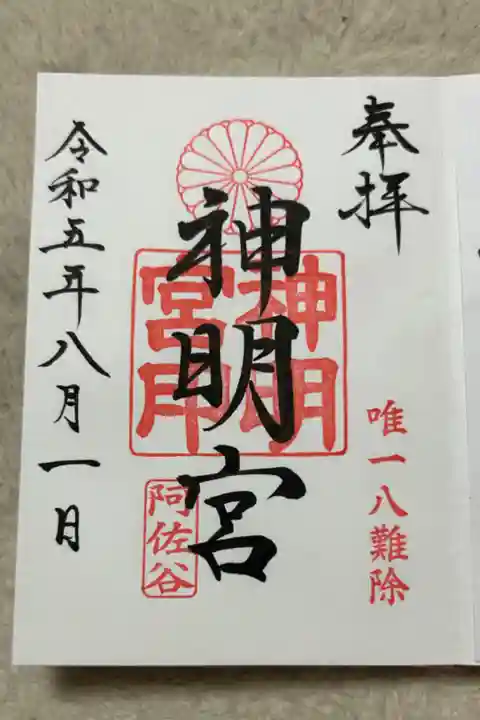 奉拝
唯一八難除
神明宮
神明宮印
阿佐谷
令和五年八月一日